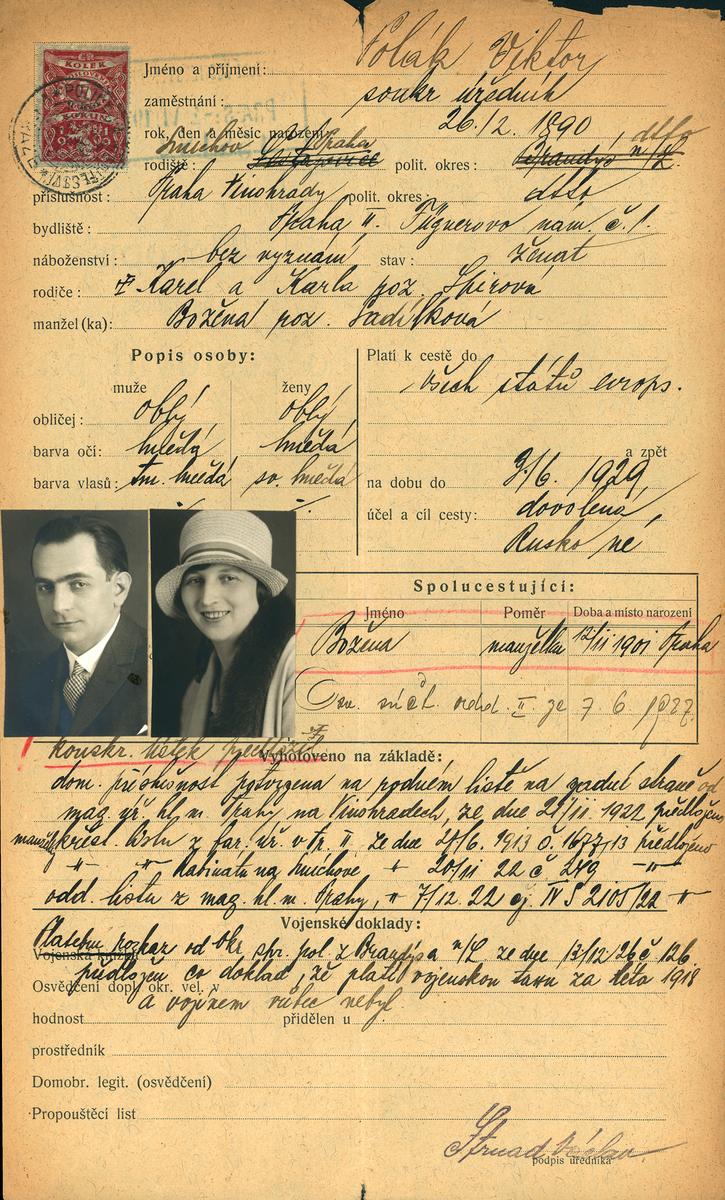 KOLEK
Jméno a příjmení: Polák Viktor
zaměstnání: soukr úředník
rok, den a měsíc narození: 26./2. 1890
Smíchov Praha, dtto
rodiště: polit. okres: Brandýs n/L.
příslušnost: Praha Vinohrady polit. okres: dtto
bydliště: Praha II. Fügnerovo nam. č. 1.
náboženství: bez vyznání stav: ženat
rodiče: Karel a Karla roz.
manžel (ka): Božena roz. Sadílková
Popis osoby:
muže ženy
obličej: oblý oblý
barva očí: hnědá hnědá
barva vlasů: tm. hnědá sv. hnědá
Platí k cestě do
všech států evrops.
a zpět
na dobu do 3/6. 1929
účel a cíl cesty: dovolená,
Rusko ne
Spolucestující:
Jméno Poměr Doba a místo narození
Božena manželka 12/II 1901 Praha
II. ze 7. 6. 1927.
konskr. lístek předložen
Vyhotoveno na základě:
dom. příslušnost potvrzena na rodném listě na zadní straně od
mag. úř. hl. m. Prahy na Vinohradech, ze dne 21/II. 1922 předložen
manželky křest. listu z far. úř. v Pr. II ze dne 27/6. 1913 č. 1677/13 předloženo
" " Rabinátu na Smíchově " 20/II 22 č 249 —"—
odd. listu z mag. hl. m. Prahy, " 7/12. 22 čj. IV S 2105/22 "
Vojenské doklady:
Platební rozkaz od okr. spr. pol. z Brandýsa n/L ze dne 13/12 26 č 126
Vojenská knížka
předložen co doklad, že platil vojenskou taxu za léta 1918
Osvědčení dopl. okr. vel. v
a vojínem vůbec nebyl.
hodnost přidělen u
prostředník
Domobr. legit. (osvědčení)
Propouštěcí list
Strnad Václav
podpis úředníka